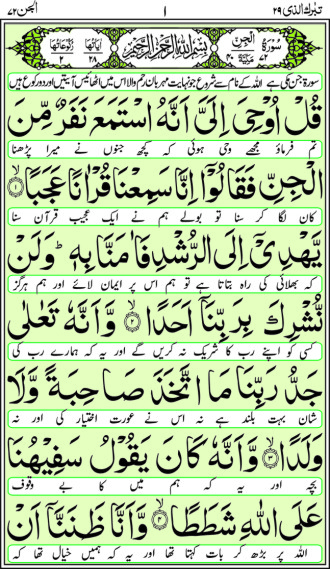 تبٰرک الذی ۲۹ ۱ الجن ۷۲
سورۃ الجن ۷۲ مکیۃ ۴۰ بسم اللہ الرحمن الرحیم اٰیاتہا ۲۸ رکوعاتہا ۲
سورۃ جن مکی ہے اللہ کے نام سے شروع جو نہایت مہربان رحم والا اس میں اٹھائیس آیتیں اور دو رکوع ہیں
قُلْ اُوْحِیَ اِلَیَّ اَنَّهُ اسْتَمَعَ نَفَرٌ مِّنَ
تم فرماؤ مجھے وحی ہوئی کہ کچھ جنوں نے میرا پڑھنا
الْجِنِّ فَقَالُوْۤا اِنَّا سَمِعْنَا قُرْاٰنًا عَجَبًا ۙ﴿۱﴾
کان لگا کر سنا تو بولے ہم نے ایک عجیب قرآن سنا
یَّهْدِیْۤ اِلَی الرُّشْدِ فَاٰمَنَّا بِهٖ ؕ وَلَنْ
کہ بھلائی کی راہ بتاتا ہے تو ہم اس پر ایمان لائے اور ہم ہرگز
نُّشْرِكَ بِرَبِّنَاۤ اَحَدًا ۙ﴿۲﴾ وَّاَنَّهٗ تَعٰلٰی
کسی کو اپنے رب کا شریک نہ کریں گے اور یہ کہ ہمارے رب کی
جَدُّ رَبِّنَا مَا اتَّخَذَ صَاحِبَةً وَّلَا
شان بہت بلند ہے نہ اس نے عورت اختیار کی اور نہ
وَلَدًا ۙ﴿۳﴾ وَّاَنَّهٗ كَانَ یَقُوْلُ سَفِیْهُنَا
بچہ اور یہ کہ ہم میں کا بے وقوف
عَلَی اللّٰهِ شَطَطًا ۙ﴿۴﴾ وَّاَنَّا ظَنَنَّاۤ اَنْ
اللہ پر بڑھ کر بات کہتا تھا اور یہ کہ ہمیں خیال تھا کہ